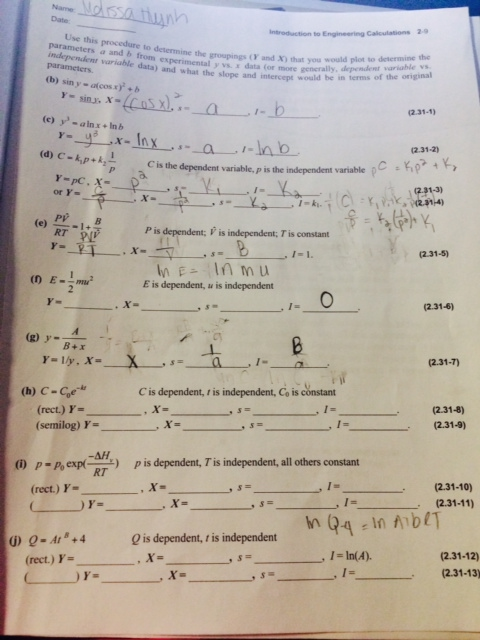 Name:
Date:
Introduction to Engineering Calculations 2-9
Use this procedure to determine the groupings (Y and X) that you would plot to determine the
parameters a and b from experimental y vs. x data (or more generally, dependent variable vs.
independent variable data) and what the slope and intercept would be in terms of the original
parameters.
(b) sin y = a(cos x)² + b
Y = sin y, X = (cos x)², s = a, I = b (2.31-1)
(c) y³ = a ln x + ln b
Y = y³, X = ln x, s = a, I = ln b (2.31-2)
(d) C = k₁p + k₂ 1/p C is the dependent variable, p is the independent variable pC = k₁p² + k₂
Y = pC, X = p², s = k₁, I = k₂ (2.31-3)
or Y = C/p, X = 1/p², s = k₂, I = k₁. (2.31-4)
C/p = k₂(1/p²) + k₁
(e) PV̂/RT = 1 + B/ P is dependent; V̂ is independent; T is constant
Y = PV̂/RT, X = , s = B, I = 1. (2.31-5)
ln E = ln mu
(f) E = 1/2 mu² E is dependent, u is independent
Y = , X = , s = , I = 0 (2.31-6)
(g) y = A/(B + x)
Y = 1/y, X = X, s = 1/a, I = B/a (2.31-7)
(h) C = C₀e^(-kt) C is dependent, t is independent, C₀ is constant
(rect.) Y = , X = , s = , I = . (2.31-8)
(semilog) Y = , X = , s = , I = (2.31-9)
(i) p = p₀ exp(-ΔHᵥ/RT) p is dependent, T is independent, all others constant
(rect.) Y = , X = , s = , I = . (2.31-10)
( ) Y = , X = , s = , I = . (2.31-11)
(j) Q = At^B + 4 Q is dependent, t is independent
(rect.) Y = , X = , s = , I = ln(A). (2.31-12)
( ) Y = , X = , s = , I = . (2.31-13)